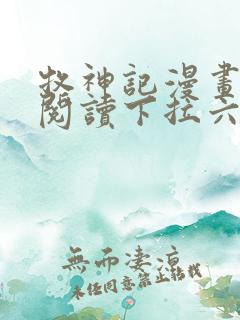 牧神記漫畫
閱讀下拉六
無而淒涼
未任同意禁止轉載